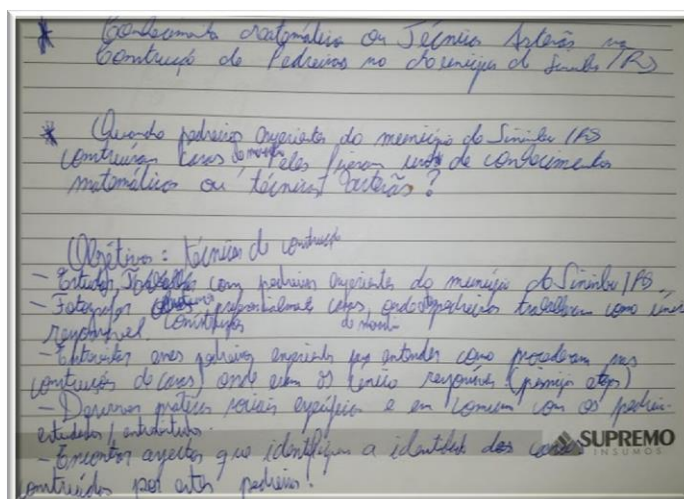 * Conhecimento Matemático ou Técnicas Artesãs na
Construção de Pedreiros no Município de Sinimbu/RS
* Quando pedreiros experientes do município de Sinimbu/RS
construíram casas de moradia, eles fizeram uso de conhecimentos
matemáticos ou técnicas artesãs?
Objetivos: técnicas de construção
- Estudar com pedreiros experientes do município de Sinimbu/RS.
- Fotografar presencialmente casas, onde pedreiros trabalharam como único
responsável. construções de moradia
- Entrevistar esses pedreiros experientes para entender como procederam nas
construções de casas, onde eram os únicos responsáveis (principais etapas)
- Descrever práticas sociais específicas e em comum com os pedreiros
estudados/entrevistados.
- Encontrar aspectos que identifiquem a identidade das casas
construídas por estes pedreiros.
SUPREMO
INSUMOS